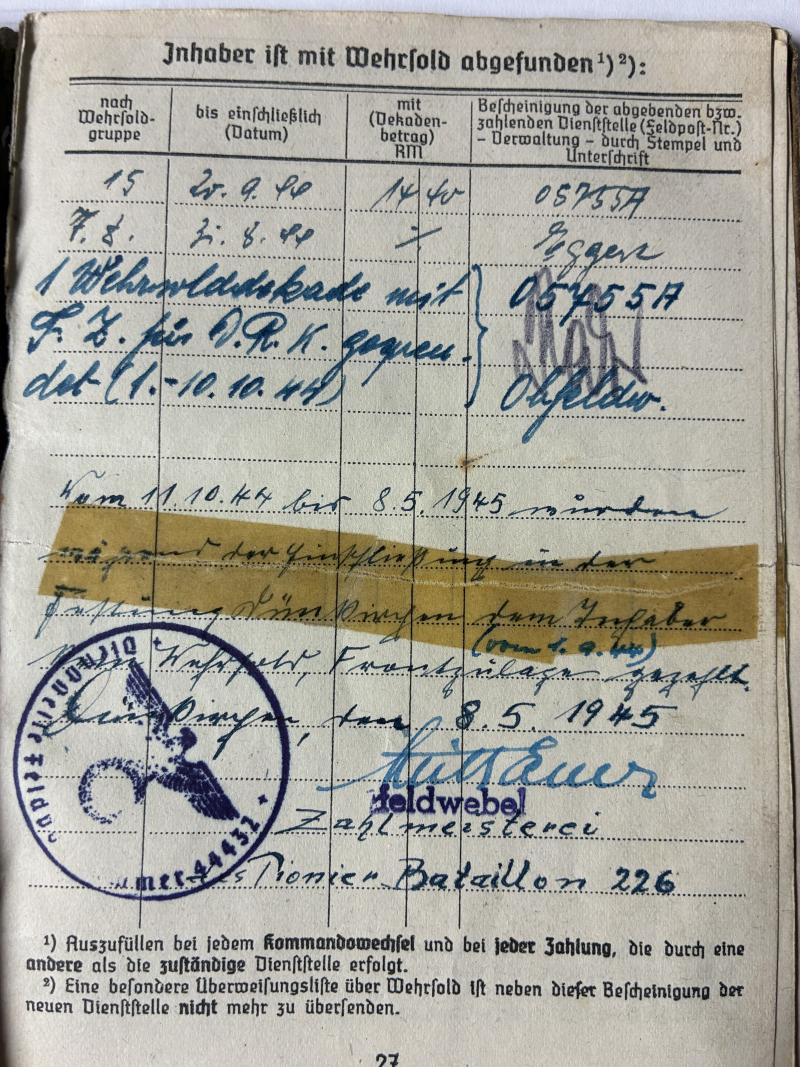 Inhaber ist mit Wehrsold abgefunden ¹) ²):
nach Wehrsold-gruppe
bis einschließlich (Datum)
mit (Dekaden-betrag) RM
Bescheinigung der abgebenden bzw. zahlenden Dienststelle (Feldpost-Nr.) - Verwaltung - durch Stempel und Unterschrift
15 20. 9. 44 14 40 05755A
8. 44 Eggert
1 Wehrsolddekade mit 05755A
F. Z. für D.R.K. gespen-
det (1.-10.10.44) Obfeldw.
Vom 11.10.44 bis 8.5.1945 wurden
während der Einschließung in der
Festung Dünkirchen dem Inhaber
(vom 1.9.44)
Wehrsold, Frontzulage gezahlt.
Dünkirchen, den 8.5.1945
feldwebel
Zahlmeisterei
Pionier Bataillon 226
Dienststelle Feldp mer 44432
¹) Auszufüllen bei jedem Kommandowechsel und bei jeder Zahlung, die durch eine
andere als die zuständige Dienststelle erfolgt.
²) Eine besondere Überweisungsliste über Wehrsold ist neben dieser Bescheinigung der
neuen Dienststelle nicht mehr zu übersenden.
27